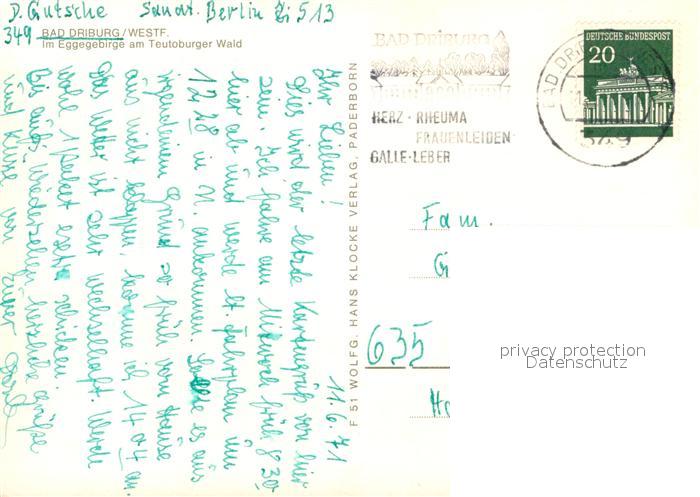 D. Gutsche Sanat. Berlin Zi 513
349 BAD DRIBURG/WESTF.
Im Eggegebirge am Teutoburger Wald
11.6.71
Ihr Lieben!
Dies wird der letzte Kartengruß von hier
sein. Ich fahre am Mittwoch früh 8 30
hier ab und werde lt. Fahrplan um
12 28 in N. ankommen. Sollte es aus
irgendeinem Grund so früh vom Hause
aus nicht klappen, komme ich 14 04 an.
Das Wetter ist sehr wechselhaft. Werde
wohl 1 Paket extra schicken.
Bis aufs Wiedersehen herzliche Grüße
und Küsse von Eurer
F 51 WOLFG. HANS KLOCKE VERLAG, PADERBORN
BAD DRIBURG
HERZ · RHEUMA
FRAUENLEIDEN
GALLE · LEBER
DEUTSCHE BUNDESPOST
20
BAD DRIBURG
349
Fam.
G
635
privacy protection
Datenschutz